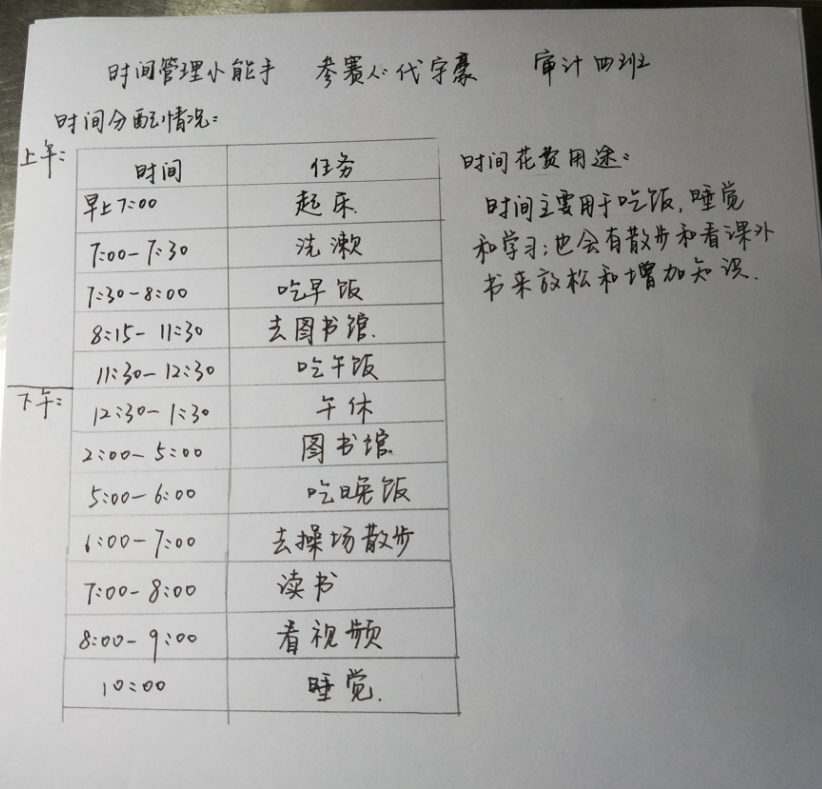 时间管理小能手 参赛人:代宇豪 审计四班
时间分配情况:
上午:
时间 任务
早上7:00 起床
7:00-7:30 洗漱
7:30-8:00 吃早饭
8:15-11:30 去图书馆.
11:30-12:30 吃午饭
下午:
12:30-1:30 午休
2:00-5:00 图书馆.
5:00-6:00 吃晚饭
6:00-7:00 去操场散步
7:00-8:00 读书
8:00-9:00 看视频
10:00 睡觉.
时间花费用途:
时间主要用于吃饭,睡觉
和学习;也会有散步和看课外
书来放松和增加知识.